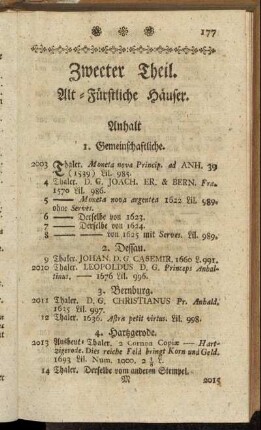 177
Zweeter Theil.
Alt-Fürstliche Häuser.
Anhalt
1. Gemeinschaftliche.
2003 Thaler. Moneta nova Princip. ad ANH. 39
(1539) Lil. 985.
4 Thaler. D. G. JOACH. ER. & BERN. Fra.
1570 Lil. 986.
5 —— Moneta nova argentea 1622 Lil. 989.
ohne Servet.
6 —— Derselbe von 1623.
7 —— Derselbe von 1624.
8 —— —— von 1625 mit Servet. Lil. 989.
2. Dessau.
9 Thaler. JOHAN. D. G CASEMIR. 1660 L. 991.
2010 Thaler. LEOPOLDUS D. G. Princeps Anhal-
tinus. — 1676 Lil. 996.
3. Bernburg.
2011 Thaler. D. G. CHRISTIANUS Pr. Anhald.
1625 Lil. 997.
12 Thaler. 1636. Astra petit virtus. Lil. 998.
4. Hartzgerode.
2013 Ausbeut-Thaler. 2 Cornua Copiæ — Hart-
zigerode. Dies reiche Feld bringt Korn und Geld.
1693 Lil. Num. 1000. 2 1/8 L.
14 Thaler. Derselbe vom andern Stempel.
M 2015